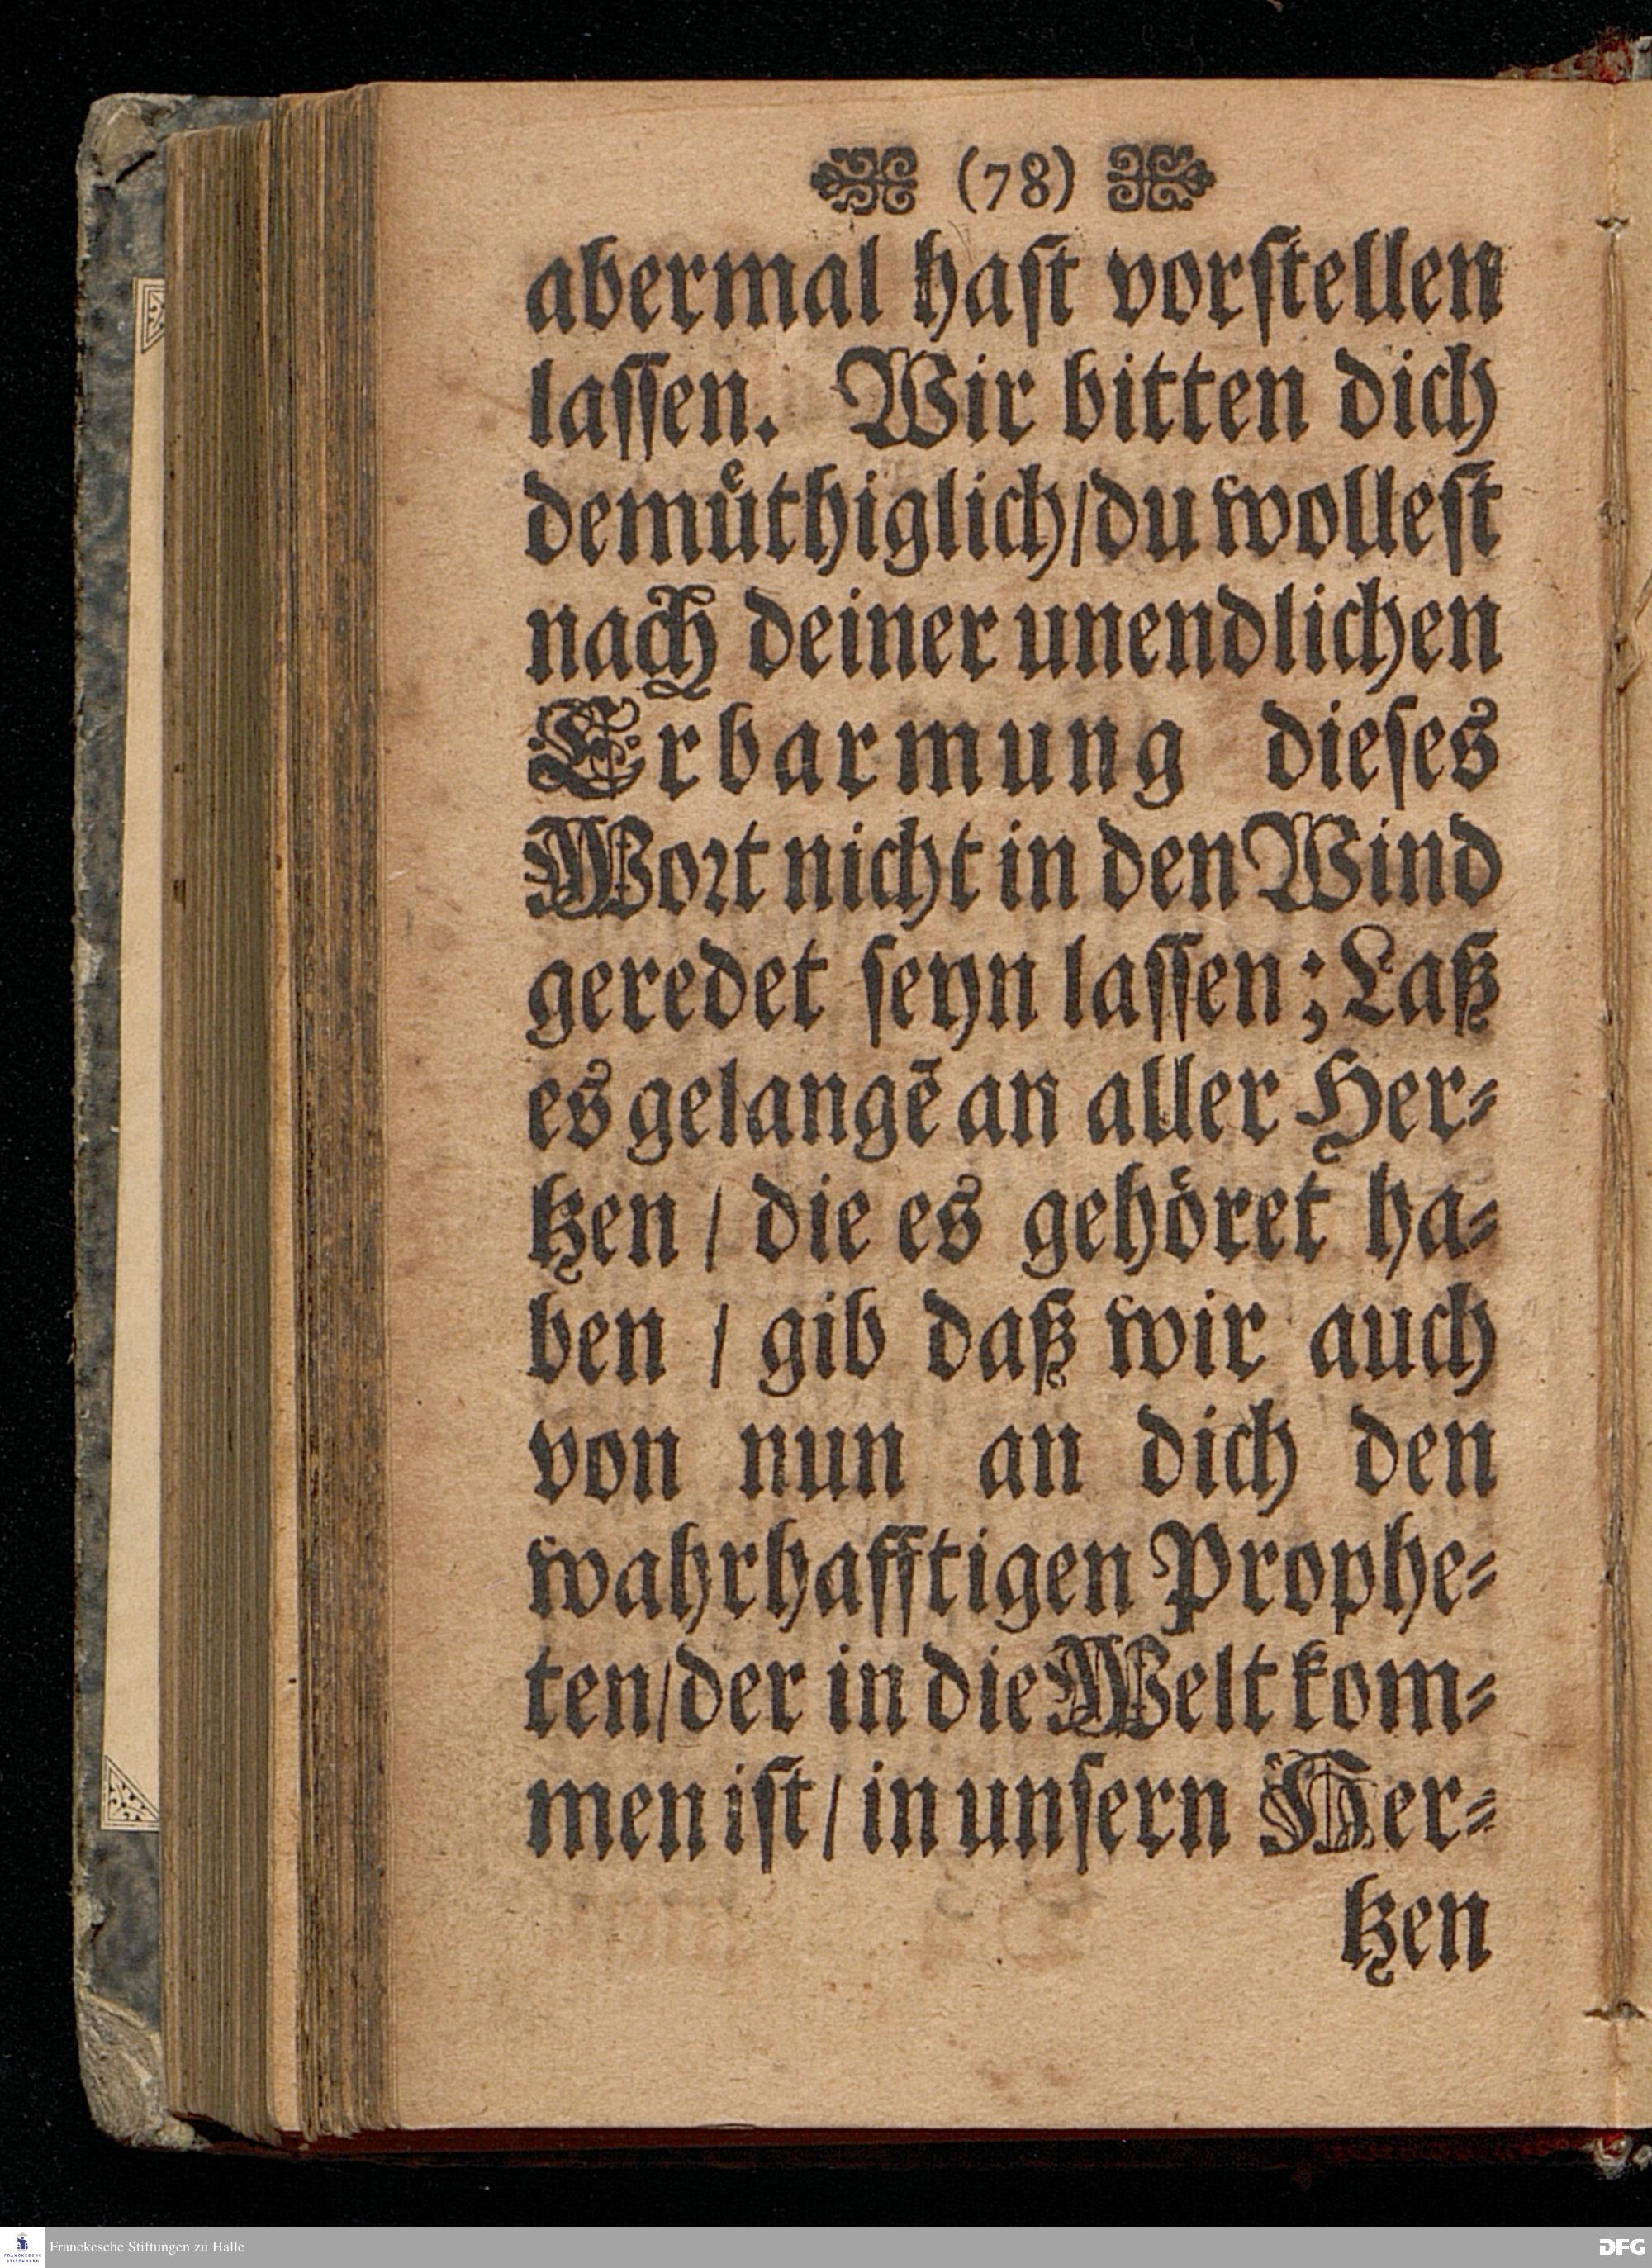 (78)
abermal haſt vorſtellen
laſſen. Wir bitten dich
demuͤthiglich/du wolleſt
nach deiner unendlichen
Erbarmung dieſes
Woꝛt nicht in den Wind
geredet ſeyn laſſen; Laß
es gelangẽ an aller Her⸗
tzen / die es gehöret ha⸗
ben / gib daß wir auch
von nun an dich den
wahrhafftigen Prophe⸗
ten/der in die Welt kom⸗
men iſt / in unſern Her⸗
tzen
Franckesche Stiftungen zu Halle
DFG